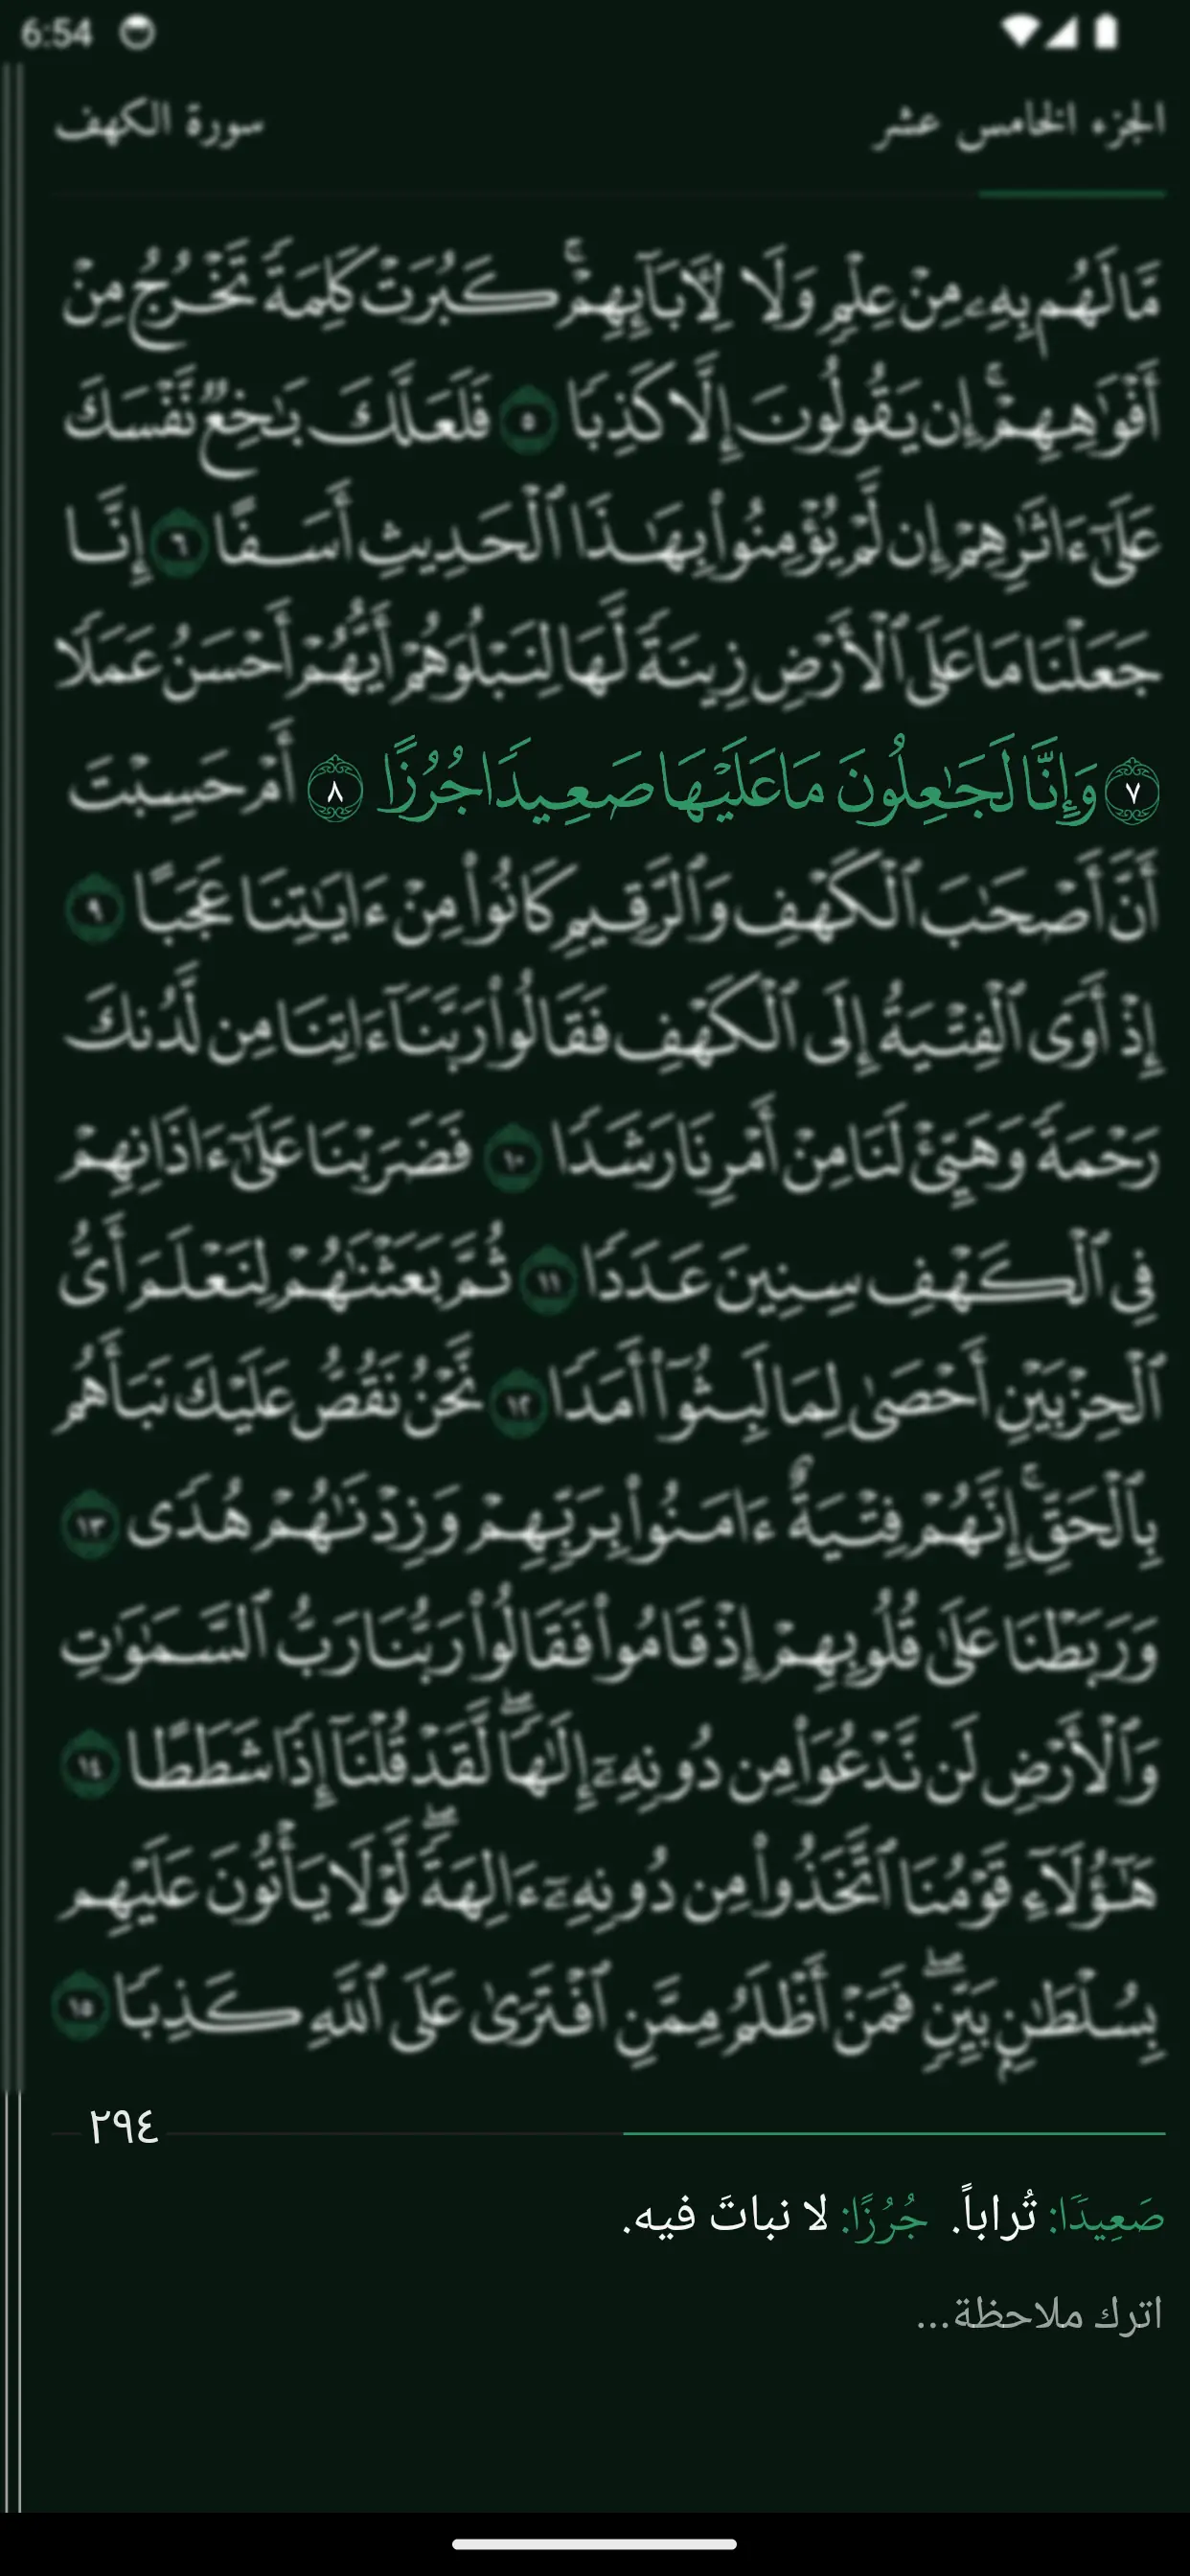 6:54
الجزء الخامس عشر
سورة الكهف
مَّا لَهُم بِهِۦ مِنْ عِلْمٍ وَلَا لِأٓبَآئِهِمْ ۚ كَبُرَتْ كَلِمَةً تَخْرُجُ مِنْ
أَفْوَٰهِهِمْ ۚ إِن يَقُولُونَ إِلَّا كَذِبًا ٥ فَلَعَلَّكَ بَـٰخِعٌ نَّفْسَكَ
عَلَىٰٓ ءَاثَـٰرِهِمْ إِن لَّمْ يُؤْمِنُوا۟ بِهَـٰذَا ٱلْحَدِيثِ أَسَفًا ٦ إِنَّا
جَعَلْنَا مَا عَلَى ٱلْأَرْضِ زِينَةً لَّهَا لِنَبْلُوَهُمْ أَيُّهُمْ أَحْسَنُ عَمَلًا
٧ وَإِنَّا لَجَـٰعِلُونَ مَا عَلَيْهَا صَعِيدًا جُرُزًا ٨ أَمْ حَسِبْتَ
أَنَّ أَصْحَـٰبَ ٱلْكَهْفِ وَٱلرَّقِيمِ كَانُوا۟ مِنْ ءَايَـٰتِنَا عَجَبًا ٩
إِذْ أَوَى ٱلْفِتْيَةُ إِلَى ٱلْكَهْفِ فَقَالُوا۟ رَبَّنَآ ءَاتِنَا مِن لَّدُنكَ
رَحْمَةً وَهَيِّئْ لَنَا مِنْ أَمْرِنَا رَشَدًا ١٠ فَضَرَبْنَا عَلَىٰٓ ءَاذَانِهِمْ
فِى ٱلْكَهْفِ سِنِينَ عَدَدًا ١١ ثُمَّ بَعَثْنَـٰهُمْ لِنَعْلَمَ أَىُّ
ٱلْحِزْبَيْنِ أَحْصَىٰ لِمَا لَبِثُوٓا۟ أَمَدًا ١٢ نَّحْنُ نَقُصُّ عَلَيْكَ نَبَأَهُم
بِٱلْحَقِّ ۚ إِنَّهُمْ فِتْيَةٌ ءَامَنُوا۟ بِرَبِّهِمْ وَزِدْنَـٰهُمْ هُدًى ١٣
وَرَبَطْنَا عَلَىٰ قُلُوبِهِمْ إِذْ قَامُوا۟ فَقَالُوا۟ رَبُّنَا رَبُّ ٱلسَّمَـٰوَٰتِ
وَٱلْأَرْضِ لَن نَّدْعُوَا۟ مِن دُونِهِۦٓ إِلَـٰهًا ۖ لَّقَدْ قُلْنَآ إِذًا شَطَطًا ١٤
هَـٰٓؤُلَآءِ قَوْمُنَا ٱتَّخَذُوا۟ مِن دُونِهِۦٓ ءَالِهَةً ۖ لَّوْلَا يَأْتُونَ عَلَيْهِم
بِسُلْطَـٰنٍۭ بَيِّنٍ ۖ فَمَنْ أَظْلَمُ مِمَّنِ ٱفْتَرَىٰ عَلَى ٱللَّهِ كَذِبًا ١٥
٢٩٤
صَعِيدًا: تُراباً. جُرُزًا: لا نباتَ فيه.
اترك ملاحظة...